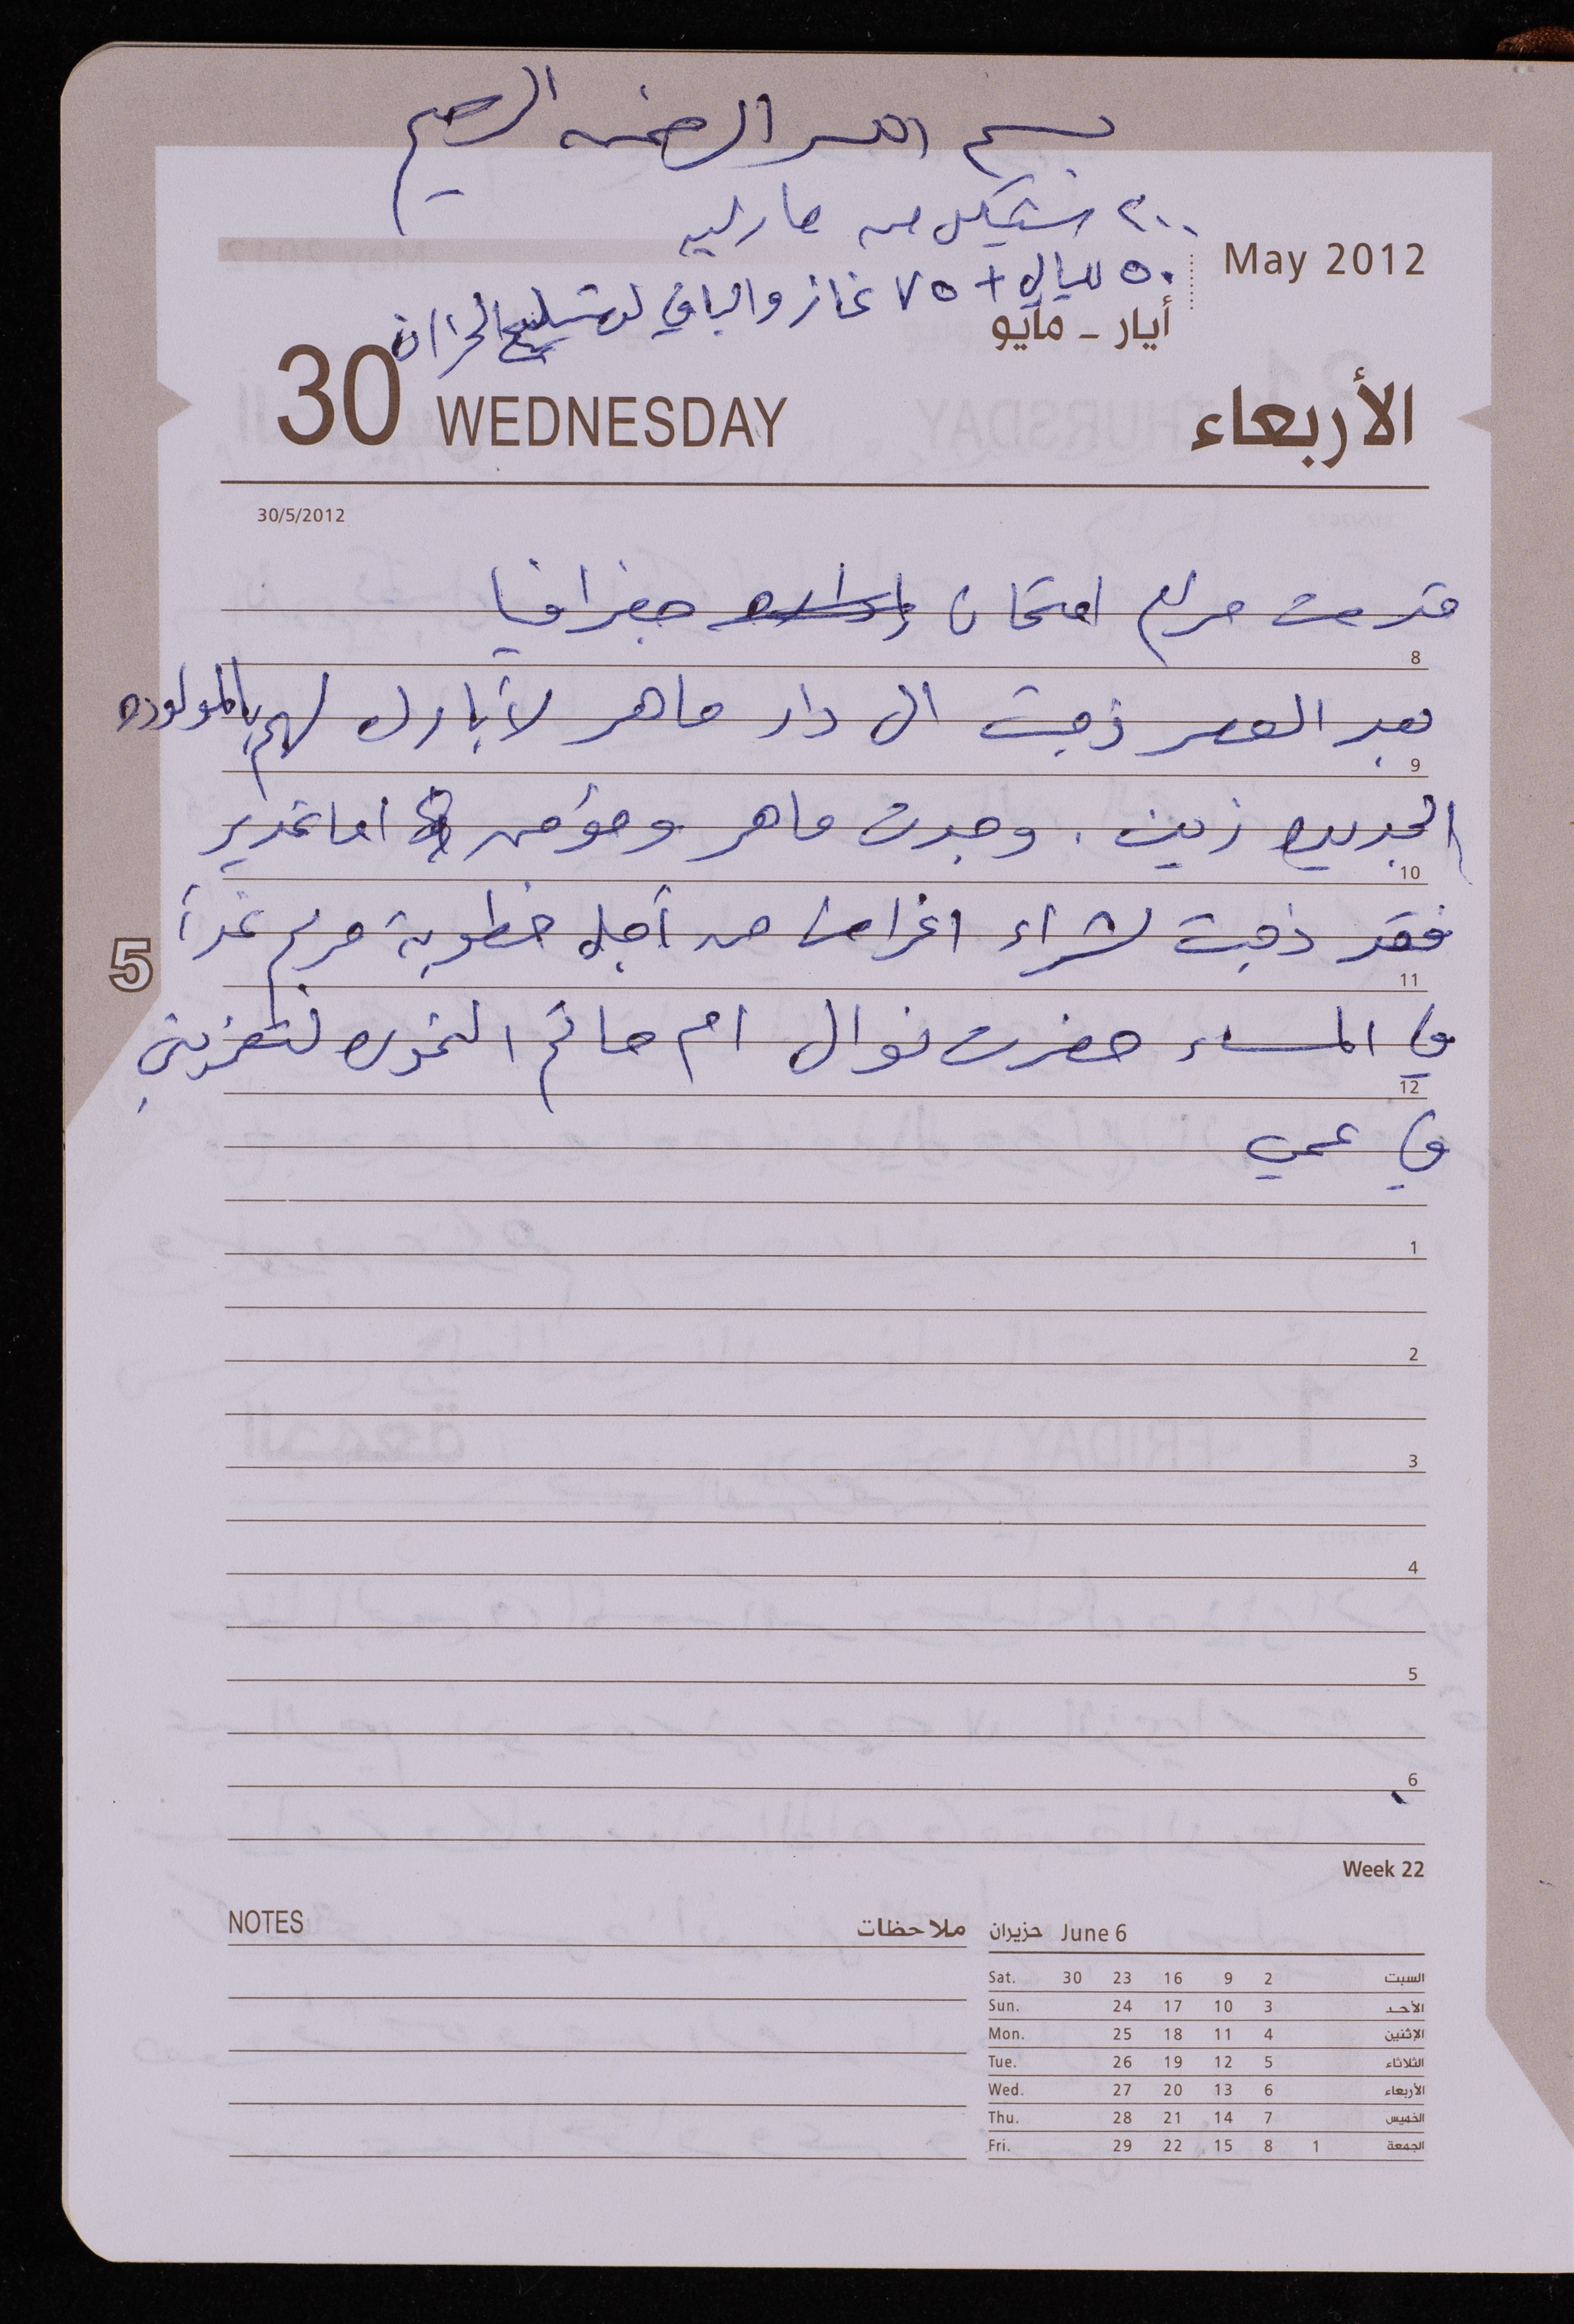 بسم الله الرحمن الرحيم
٢٠٠ شيكل من
May 2012
٥٠ لليال + ٧٥ غاز والباقي لتصليح الخزان
أيار - مايو
30 WEDNESDAY الأربعاء
30/5/2012
قدمت مريم امتحان جغرافيا
8
بعد العصر ذهبت الى دار ماهر لأبارك لهم بالمولوده
9
الجديده زين . وجدت ماهر ومؤمن اما غدير
10
فقد ذهبت لشراء اغراض من أجل خطوبة مريم غداً
5
11
في المساء حضرت نوال ام حاتم لتعزيتي
12
في عمي
1
2
3
4
5
6
Week 22
NOTES ملاحظات
حزيران June 6
Sat. 30 23 16 9 2 السبت
Sun. 24 17 10 3 الأحد
Mon. 25 18 11 4 الإثنين
Tue. 26 19 12 5 الثلاثاء
Wed. 27 20 13 6 الأربعاء
Thu. 28 21 14 7 الخميس
Fri. 29 22 15 8 1 الجمعة